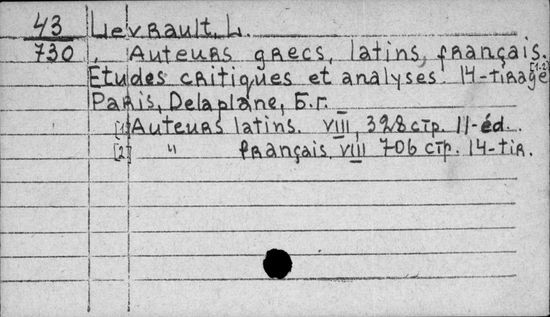 43 Levrault, L.
730 , Auteurs grecs, latins, français.
Études critiques et analyses. 14-tirage [1-2]
Paris, Delaplane, Б.г.
[1] Auteurs latins. VIII, 328 стр. 11-éd.
[2] " français. VIII 706 стр. 14-tir.